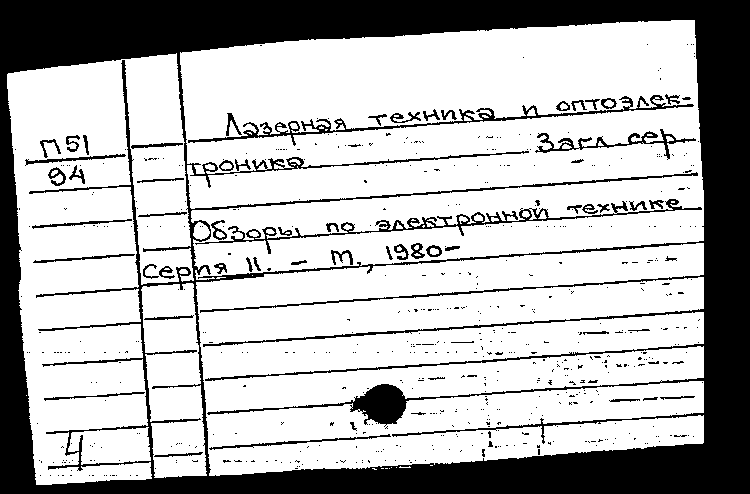 Лазерная техника и оптоэлек-
П51
троника Загл. сер.
94
Обзоры по электронной технике
Серия 11. – М., 1980–
4